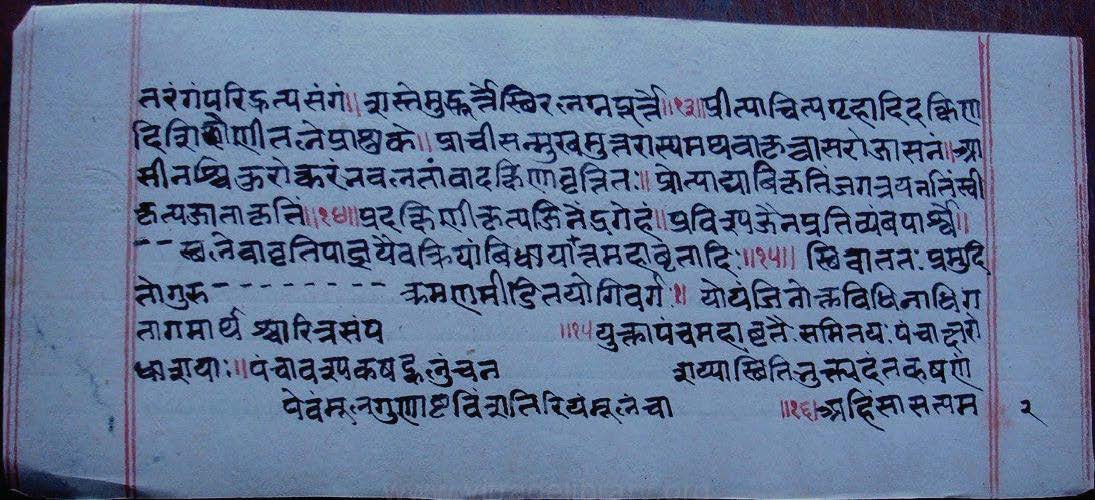 तरंगंपरिहृत्यसंगं॥ शस्तेमुहूर्त्तेस्थिरलग्नपूर्त्ते॥१३॥ प्रीत्याचित्यगृहादिदक्षिण
दिशिक्षौणीतलेप्राशुके॥ प्राचीसन्मुखमुत्तरास्यमथवाकृत्वासरोजासनं॥आ
सीनश्चिकुरोत्करंनवलतांवादक्षिणावृत्तितः॥ प्रोत्पाद्याविकृतिंजगत्रयनतिंस्वी
कृत्यजाताकृतिं॥१४॥ प्रदक्षिणीकृत्यजिनेंद्रगेहं॥ प्रविश्यजैनप्रतिव्यंबपार्श्वे॥
-- स्थलेवावृतिपाद्यथैवक्रियांविधार्यान्नमहाबृतादिः॥१५॥ स्थित्वाततःप्रमुदि
तोगुरु--------- क्रमणमीडितयोगिवर्ग॥ योयंजिनोक्तविधिनाधिग
तागमार्थश्चारित्रसंप ॥१५युक्तापंचमहाबृतैःसमितयःपंचाक्षरो
धाशयाः॥पंचावश्यकषट्कलुंचन शय्यास्थितिभुक्त्यदंतकषणं
पेवंमूलगुणाष्टविंशतिरियंमूलंचा ॥१६॥अहिंसासत्यम २